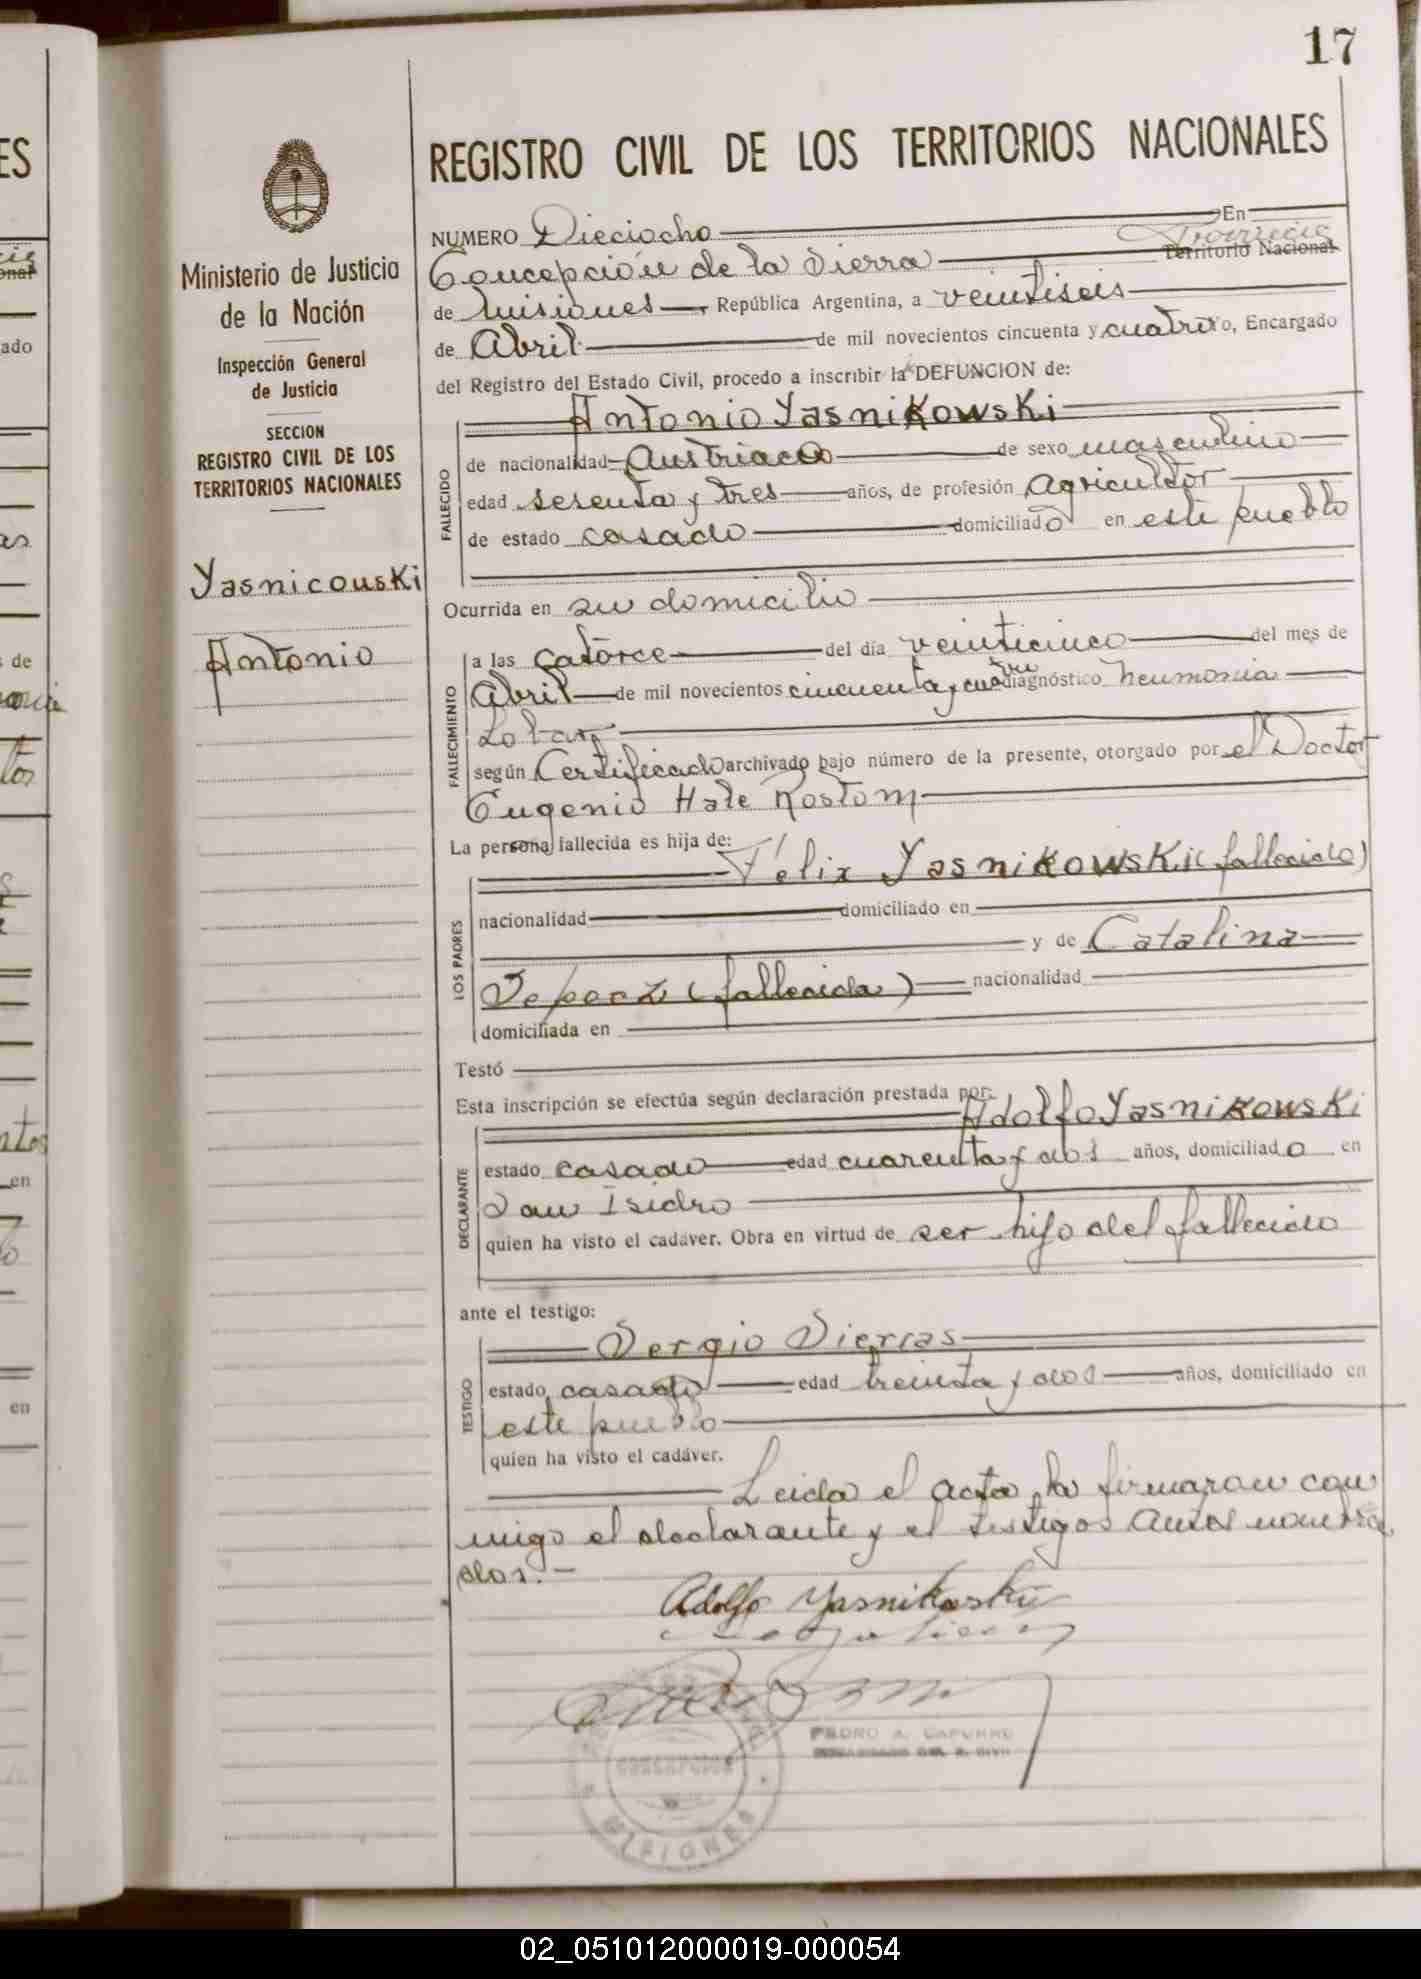 17
REGISTRO CIVIL DE LOS TERRITORIOS NACIONALES
Ministerio de Justicia
de la Nación
Inspección General
de Justicia
SECCION
REGISTRO CIVIL DE LOS
TERRITORIOS NACIONALES
Yasnicouski
Antonio
NUMERO Dieciocho En
Concepción de la Sierra Provincia Territorio Nacional
de Misiones, República Argentina, a veintiseis
de Abril de mil novecientos cincuenta y cuatro yo, Encargado
del Registro del Estado Civil, procedo a inscribir la DEFUNCION de:
FALLECIDO
Antonio Yasnikowski
de nacionalidad Austriaco de sexo masculino
edad sesenta y tres años, de profesión Agricultor
de estado casado domiciliado en este pueblo
Ocurrida en su domicilio
FALLECIMIENTO
a las catorce del día veinticinco del mes de
Abril de mil novecientos cincuenta y cuatro diagnóstico Neumonia
Lobar
según Certificado archivado bajo número de la presente, otorgado por el Doctor
Eugenio Hate Rostom
La persona fallecida es hija de:
LOS PADRES
Félix Yasnikowski (fallecido)
nacionalidad domiciliado en
y de Catalina
(fallecida) nacionalidad
domiciliada en
Testó
Esta inscripción se efectúa según declaración prestada por:
DECLARANTE
Adolfo Yasnikowski
estado casado edad cuarenta y dos años, domiciliado en
San Isidro
quien ha visto el cadáver. Obra en virtud de ser hijo del fallecido
ante el testigo:
TESTIGO
Sergio Vierras
estado casado edad treinta y dos años, domiciliado en
este pueblo
quien ha visto el cadáver.
Leida el acta, la firmaron con
migo el declarante y el testigos antes nombra
dos.-
Adolfo Yasnikoski
PEDRO A. CAPURRO
ENCARGADO DEL R. CIVIL
CONCEPCION
MISIONES
02_051012000019-000054